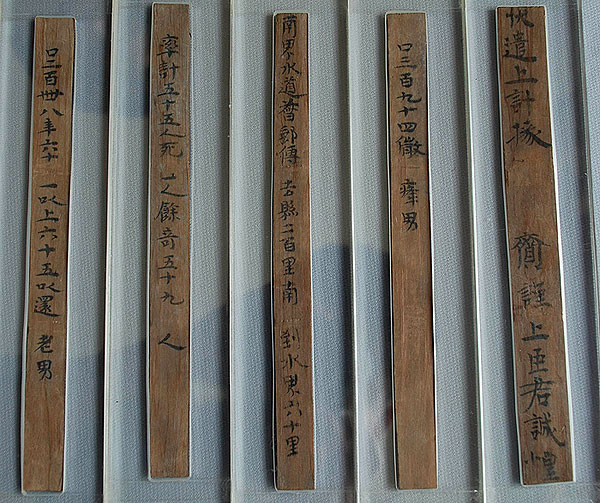 遣上計掾 謹上臣君誠惶
口三百九十四 癃男
南界水道 郵傳 去縣二百里南 到水界六十里
率計五十五人死 一人餘奇五十九 人
口三百卌八年六十 一以上六十五以還 老男